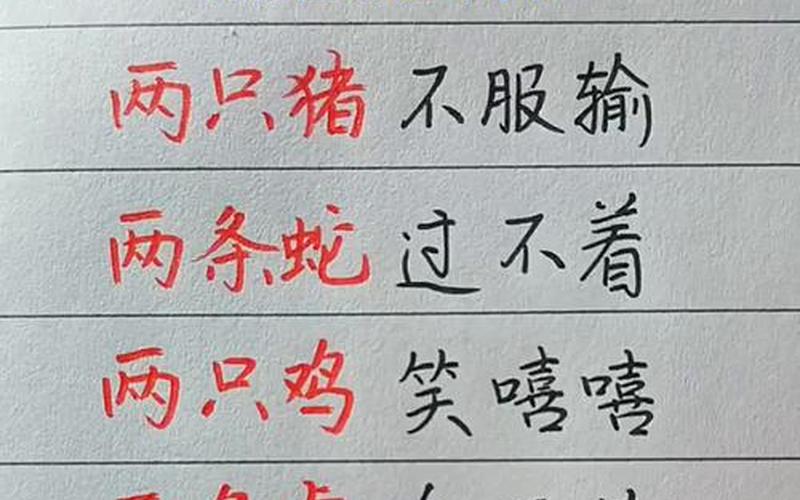 两只猪 不服输
两条蛇 过不着
两只鸡 笑嘻嘻